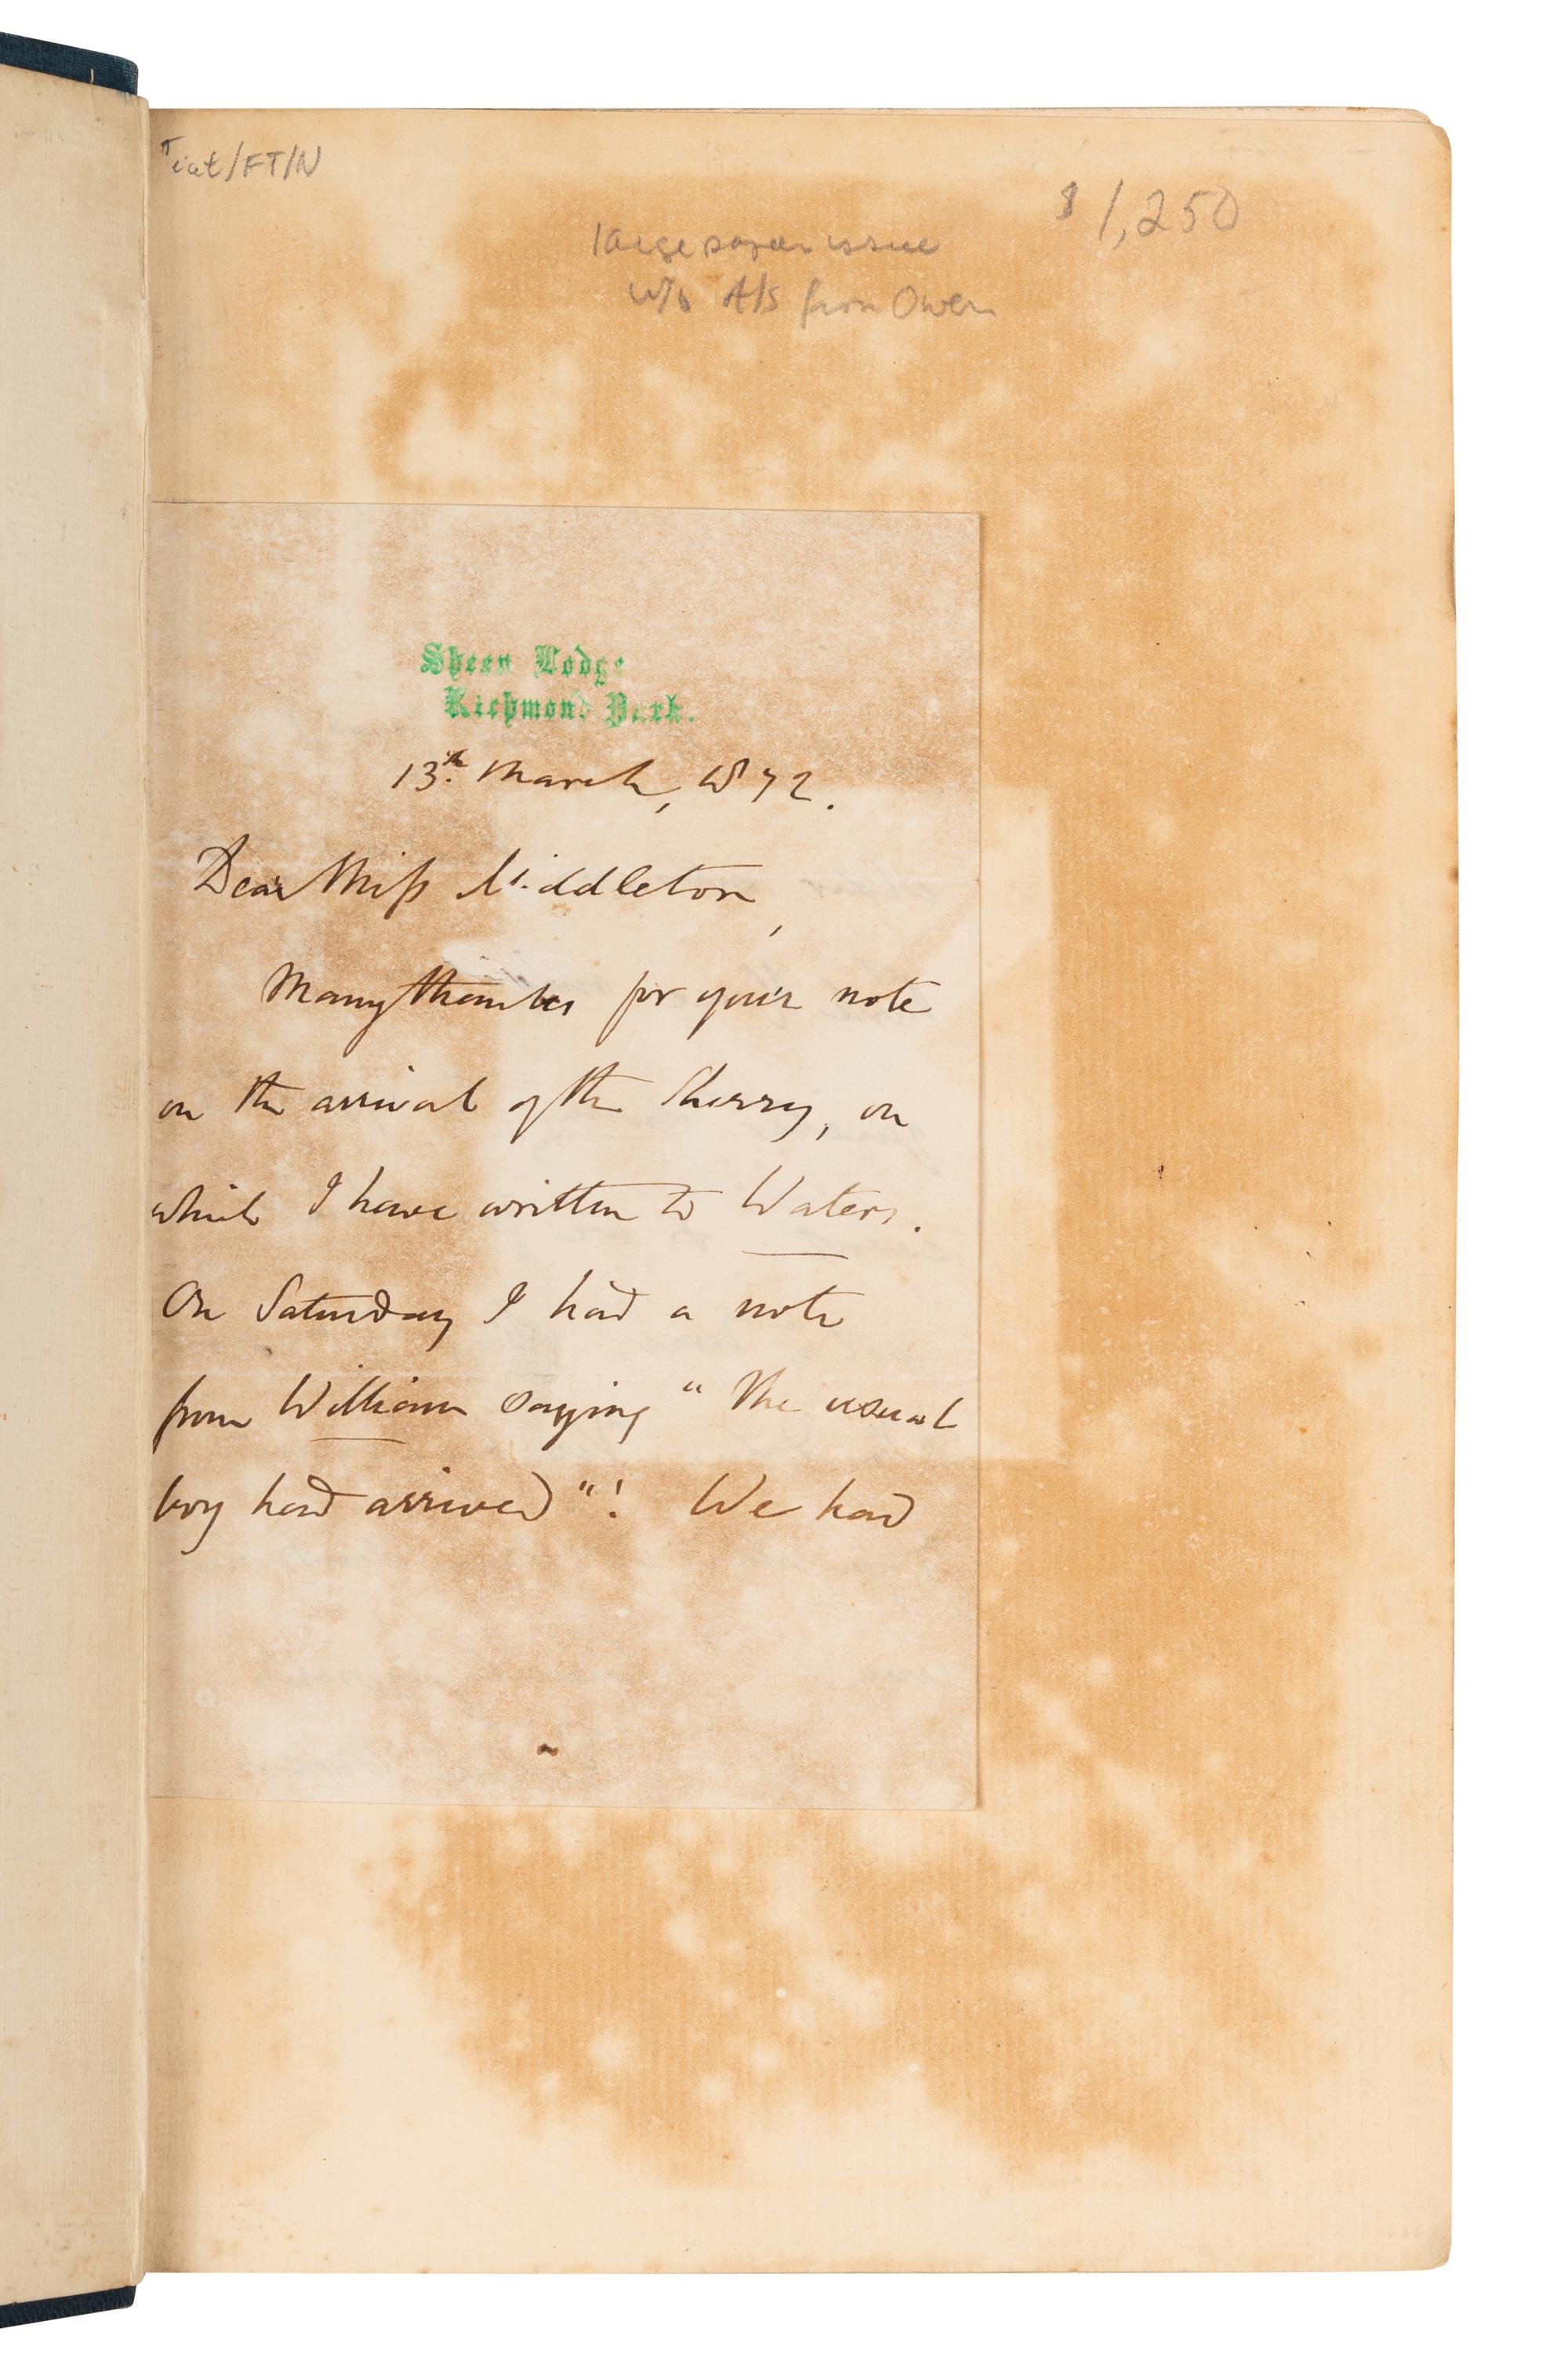 /FT/N
$1,250
large paper issue
w/ ALS from Owen
Sheen Lodge
Richmond Park.
13th. March, 1872.
Dear Miſs Middleton,
Many thanks for your note
on the arrival of the Sherry, on
which I have written to Waters.
On Saturday I had a note
from William saying "The usual
boy had arrived"! We had